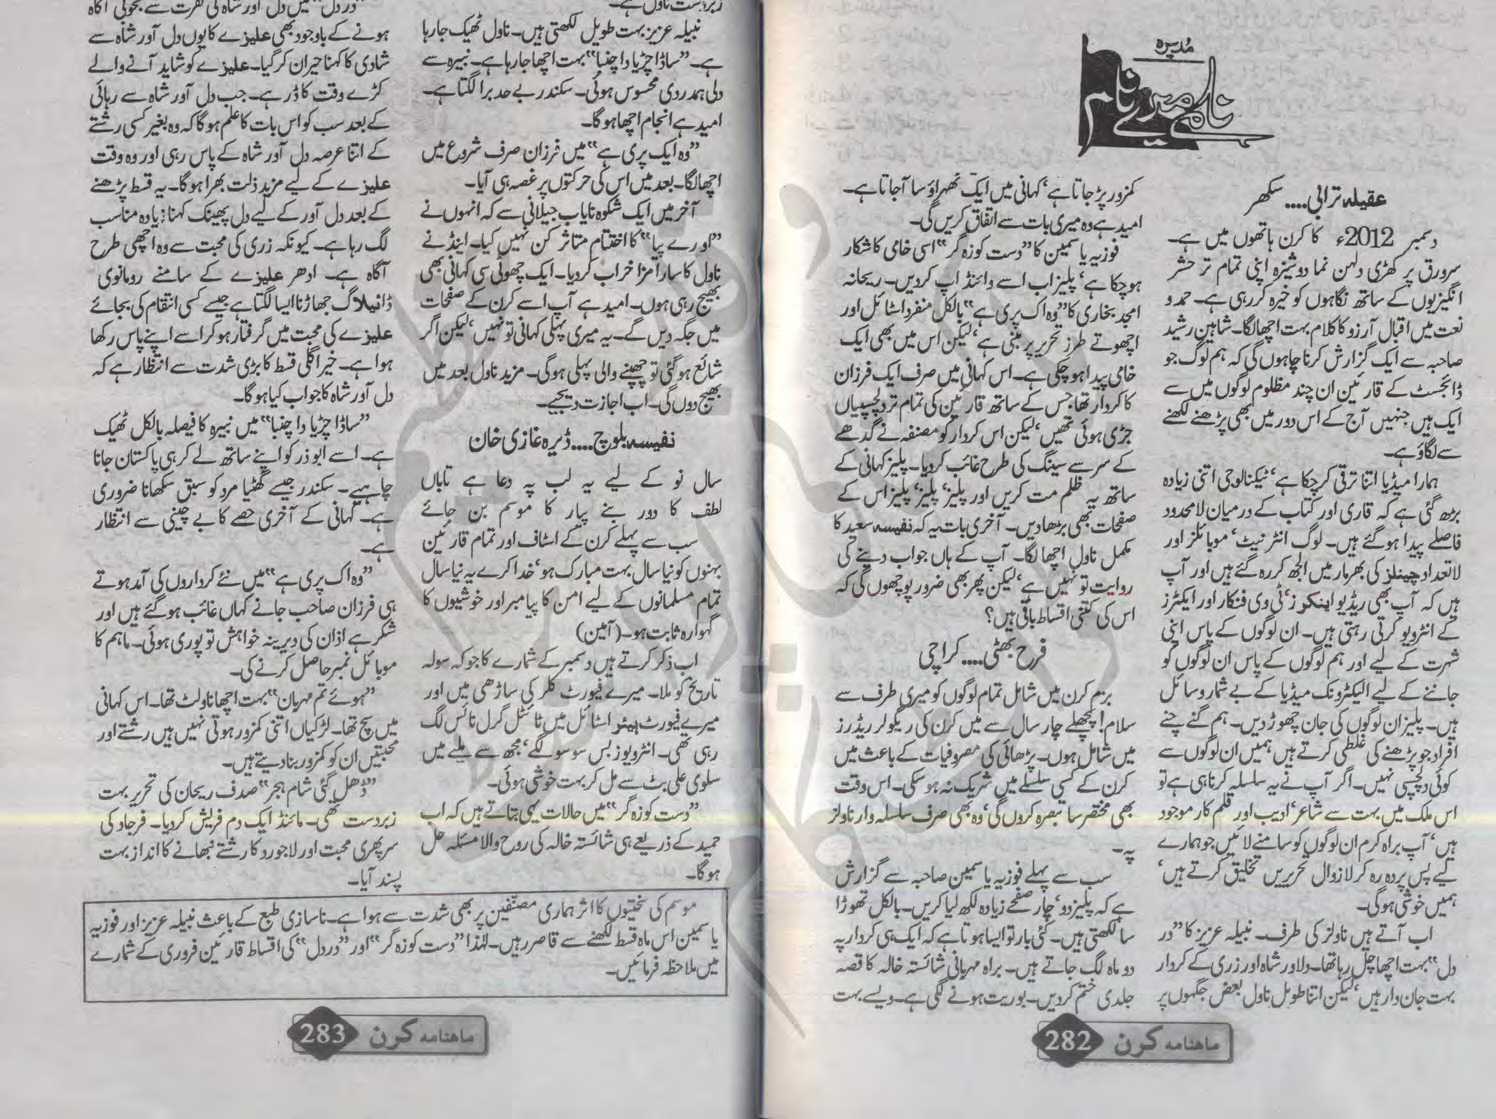 مُدیرہ
نامے میرے نام
عقیلہ ترابی.... سکھر
دسمبر 2012ء کا کرن ہاتھوں میں ہے۔
سرورق پر کھڑی دلہن نما دوشیزہ اپنی تمام تر حشر
انگیزیوں کے ساتھ نگاہوں کو خیرہ کر رہی ہے۔ حمد و
نعت میں اقبال آرزو کا کلام بہت اچھا لگا۔ شاہین رشید
صاحبہ سے ایک گزارش کرنا چاہوں گی کہ ہم لوگ جو
ڈائجسٹ کے قارئین ان چند مظلوم لوگوں میں سے
ایک ہیں جنہیں آج کے اس دور میں بھی پڑھنے لکھنے
سے لگاؤ ہے۔
ہمارا میڈیا اتنا ترقی کر چکا ہے' ٹیکنالوجی اتنی زیادہ
بڑھ گئی ہے کہ قاری اور کتاب کے درمیان لامحدود
فاصلے پیدا ہوگئے ہیں۔ لوگ انٹرنیٹ' موبائلز اور
لاتعداد چینلز کی بھرمار میں الجھ کر رہ گئے ہیں اور آپ
ہیں کہ آپ بھی ریڈیو اینکرز' ٹی وی فنکار اور ایکٹرز
کے انٹرویو کرتی رہتی ہیں۔ ان لوگوں کے پاس اپنی
شہرت کے لیے اور ہم لوگوں کے پاس ان لوگوں کو
جاننے کے لیے الیکٹرونک میڈیا کے بے شمار وسائل
ہیں۔ پلیز ان لوگوں کی جان چھوڑ دیں۔ ہم گئے چنے
افراد جو پڑھنے کی غلطی کرتے ہیں ہمیں ان لوگوں سے
کوئی دلچسپی نہیں۔ اگر آپ نے یہ سلسلہ کرنا ہی ہے تو
اس ملک میں بہت سے شاعر' ادیب اور قلم کار موجود
ہیں' آپ براہ کرم ان لوگوں کو سامنے لائیں جو ہمارے
لیے پس پردہ رہ کر لازوال تحریریں تخلیق کرتے ہیں'
ہمیں خوشی ہوگی۔
اب آتے ہیں ناولز کی طرف۔ نبیلہ عزیز کا "در
دل" بہت اچھا چل رہا تھا۔ دلاور شاہ اور زری کے کردار
بہت جان دار ہیں' لیکن اتنا طویل ناول بعض جگہوں پر
کمزور پڑ جاتا ہے' کہانی میں ایک ٹھہراؤ سا آجاتا ہے۔
امید ہے وہ میری بات سے اتفاق کریں گی۔
فوزیہ یاسمین کا "دست کوزہ گر" اسی خامی کا شکار
ہوچکا ہے' پلیز اب اسے وائنڈ اپ کردیں۔ ریحانہ
امجد بخاری کا "وہ اک پری ہے" بالکل منفرد اسٹائل اور
اچھوتے طرز تحریر پر مبنی ہے' لیکن اس میں بھی ایک
خامی پیدا ہو چکی ہے۔ اس کہانی میں صرف ایک فرزان
کا کردار تھا جس کے ساتھ قارئین کی تمام تر دلچسپیاں
جڑی ہوئی تھیں' لیکن اس کردار کو مصنفہ نے گدھے
کے سر سے سینگ کی طرح غائب کردیا۔ پلیز کہانی کے
ساتھ یہ ظلم مت کریں اور پلیز' پلیز' پلیز اس کے
صفحات بھی بڑھادیں۔ آخری بات یہ کہ نفیسہ سعید کا
مکمل ناول اچھا لگا۔ آپ کے ہاں جواب دینے کی
روایت تو نہیں ہے' لیکن پھر بھی ضرور پوچھوں گی کہ
اس کی کتنی اقساط باقی ہیں؟
فرح بھٹی.... کراچی
بزم کرن میں شامل تمام لوگوں کو میری طرف سے
سلام! پچھلے چار سال سے میں کرن کی ریگولر ریڈرز
میں شامل ہوں۔ پڑھائی کی مصروفیات کے باعث میں
کرن کے کسی سلسلے میں شریک نہ ہوسکی۔ اس وقت
بھی مختصر سا تبصرہ کروں گی' وہ بھی صرف سلسلہ وار ناولز
پہ۔
سب سے پہلے فوزیہ یاسمین صاحبہ سے گزارش
ہے کہ پلیز دو' چار صفحے زیادہ لکھ لیا کریں۔ بالکل تھوڑا
سا لکھتی ہیں۔ کئی بار تو ایسا ہوتا ہے کہ ایک ہی کردار پہ
دو ماہ لگ جاتے ہیں۔ براہ مہربانی شائستہ خالہ کا قصہ
جلدی ختم کردیں۔ بوریت ہونے لگی ہے۔ ویسے بہت
ماہنامہ کرن 282
زبردست ناول ہے۔
نبیلہ عزیز بہت طویل لکھتی ہیں۔ ناول ٹھیک جارہا
ہے۔ "ساڈا چڑیا دا چنبا" بہت اچھا جارہا ہے۔ نبیرہ سے
دلی ہمدردی محسوس ہوئی۔ سکندر بے حد برا لگتا ہے۔
امید ہے انجام اچھا ہوگا۔
"وہ ایک پری ہے" میں فرزان صرف شروع میں
اچھا لگا۔ بعد میں اس کی حرکتوں پر غصہ ہی آیا۔
آخر میں ایک شکوہ نایاب جیلانی سے کہ انہوں نے
"اورے پیا" کا اختتام متاثر کن نہیں کیا۔ اینڈ نے
ناول کا سارا مزا خراب کردیا۔ ایک چھوٹی سی کہانی بھی
بھیج رہی ہوں۔ امید ہے آپ اسے کرن کے صفحات
میں جگہ دیں گے۔ یہ میری پہلی کہانی تو نہیں' لیکن اگر
شائع ہوگئی تو چھپنے والی پہلی ہوگی۔ مزید ناول بعد میں
بھیج دوں گی۔ اب اجازت دیجیے۔
نفیسہ بلوچ.... ڈیرہ غازی خان
سال نو کے لیے یہ لب پہ دعا ہے تاباں
لطف کا دور بنے پیار کا موسم بن جائے
سب سے پہلے کرن کے اسٹاف اور تمام قارئین
بہنوں کو نیا سال بہت مبارک ہو' خدا کرے یہ نیا سال
تمام مسلمانوں کے لیے امن کا پیامبر اور خوشیوں کا
گہوارہ ثابت ہو۔ (آمین)
اب ذکر کرتے ہیں دسمبر کے شمارے کا جو کہ سولہ
تاریخ کو ملا۔ میرے فیورٹ کلر کی ساڑھی میں اور
میرے فیورٹ ہیئر اسٹائل میں ٹائٹل گرل نائس لگ
رہی تھی۔ انٹرویوز بس سو سو لگے' مجھ سے ملیے میں
سلوی علی بٹ سے مل کر بہت خوشی ہوئی۔
"دست کوزہ گر" میں حالات یہی بتاتے ہیں کہ اب
حمید کے ذریعے ہی شائستہ خالہ کی روح والا مسئلہ حل
ہوگا۔
"در دل" میں دل آور شاہ کی نفرت سے بخوبی آگاہ
ہونے کے باوجود بھی علیزے کا یوں دل آور شاہ سے
شادی کا کہنا حیران کر گیا۔ علیزے کو شاید آنے والے
کڑے وقت کا ڈر ہے۔ جب دل آور شاہ سے رہائی
کے بعد سب کو اس بات کا علم ہوگا کہ وہ بغیر کسی رشتے
کے اتنا عرصہ دل آور شاہ کے پاس رہی اور وہ وقت
علیزے کے لیے مزید ذلت بھرا ہوگا۔ یہ قسط پڑھنے
کے بعد دل آور کے لیے دل پھینک کہنا زیادہ مناسب
لگ رہا ہے۔ کیونکہ زری کی محبت سے وہ اچھی طرح
آگاہ ہے۔ ادھر علیزے کے سامنے رومانوی
ڈائیلاگ جھاڑنا ایسا لگتا ہے جیسے کسی انتقام کی بجائے
علیزے کی محبت میں گرفتار ہو کر اسے اپنے پاس رکھا
ہوا ہے۔ خیر اگلی قسط کا بڑی شدت سے انتظار ہے کہ
دل آور شاہ کا جواب کیا ہوگا۔
"ساڈا چڑیا دا چنبا" میں نبیرہ کا فیصلہ بالکل ٹھیک
ہے۔ اسے ابوذر کو اپنے ساتھ لے کر ہی پاکستان جانا
چاہیے۔ سکندر جیسے گھٹیا مرد کو سبق سکھانا ضروری
ہے۔ کہانی کے آخری حصے کا بے چینی سے انتظار
ہے۔
"وہ اک پری ہے" میں نئے کرداروں کی آمد ہوتے
ہی فرزان صاحب جانے کہاں غائب ہو گئے ہیں اور
شکر ہے اذان کی دیرینہ خواہش تو پوری ہوئی۔ ماہم کا
موبائل نمبر حاصل کرنے کی۔
"ہوئے تم مہربان" بہت اچھا ناولٹ تھا۔ اس کہانی
میں سچ تھا۔ لڑکیاں اتنی کمزور ہوتی نہیں ہیں رشتے اور
محبتیں ان کو کمزور بنادیتے ہیں۔
"ڈھل گئی شام ہجر" صدف ریحان کی تحریر بہت
زبردست تھی۔ مائنڈ ایک دم فریش کردیا۔ فرجاد کی
سرپھری محبت اور لاجورد کا رشتے نبھانے کا انداز بہت
پسند آیا۔
موسم کی سختیوں کا اثر ہماری مصنفین پر بھی شدت سے ہوا ہے۔ ناسازی طبع کے باعث نبیلہ عزیز اور فوزیہ
یاسمین اس ماہ قسط لکھنے سے قاصر رہیں۔ لہٰذا "دست کوزہ گر" اور "در دل" کی اقساط قارئین فروری کے شمارے
میں ملاحظہ فرمائیں۔
ماہنامہ کرن 283